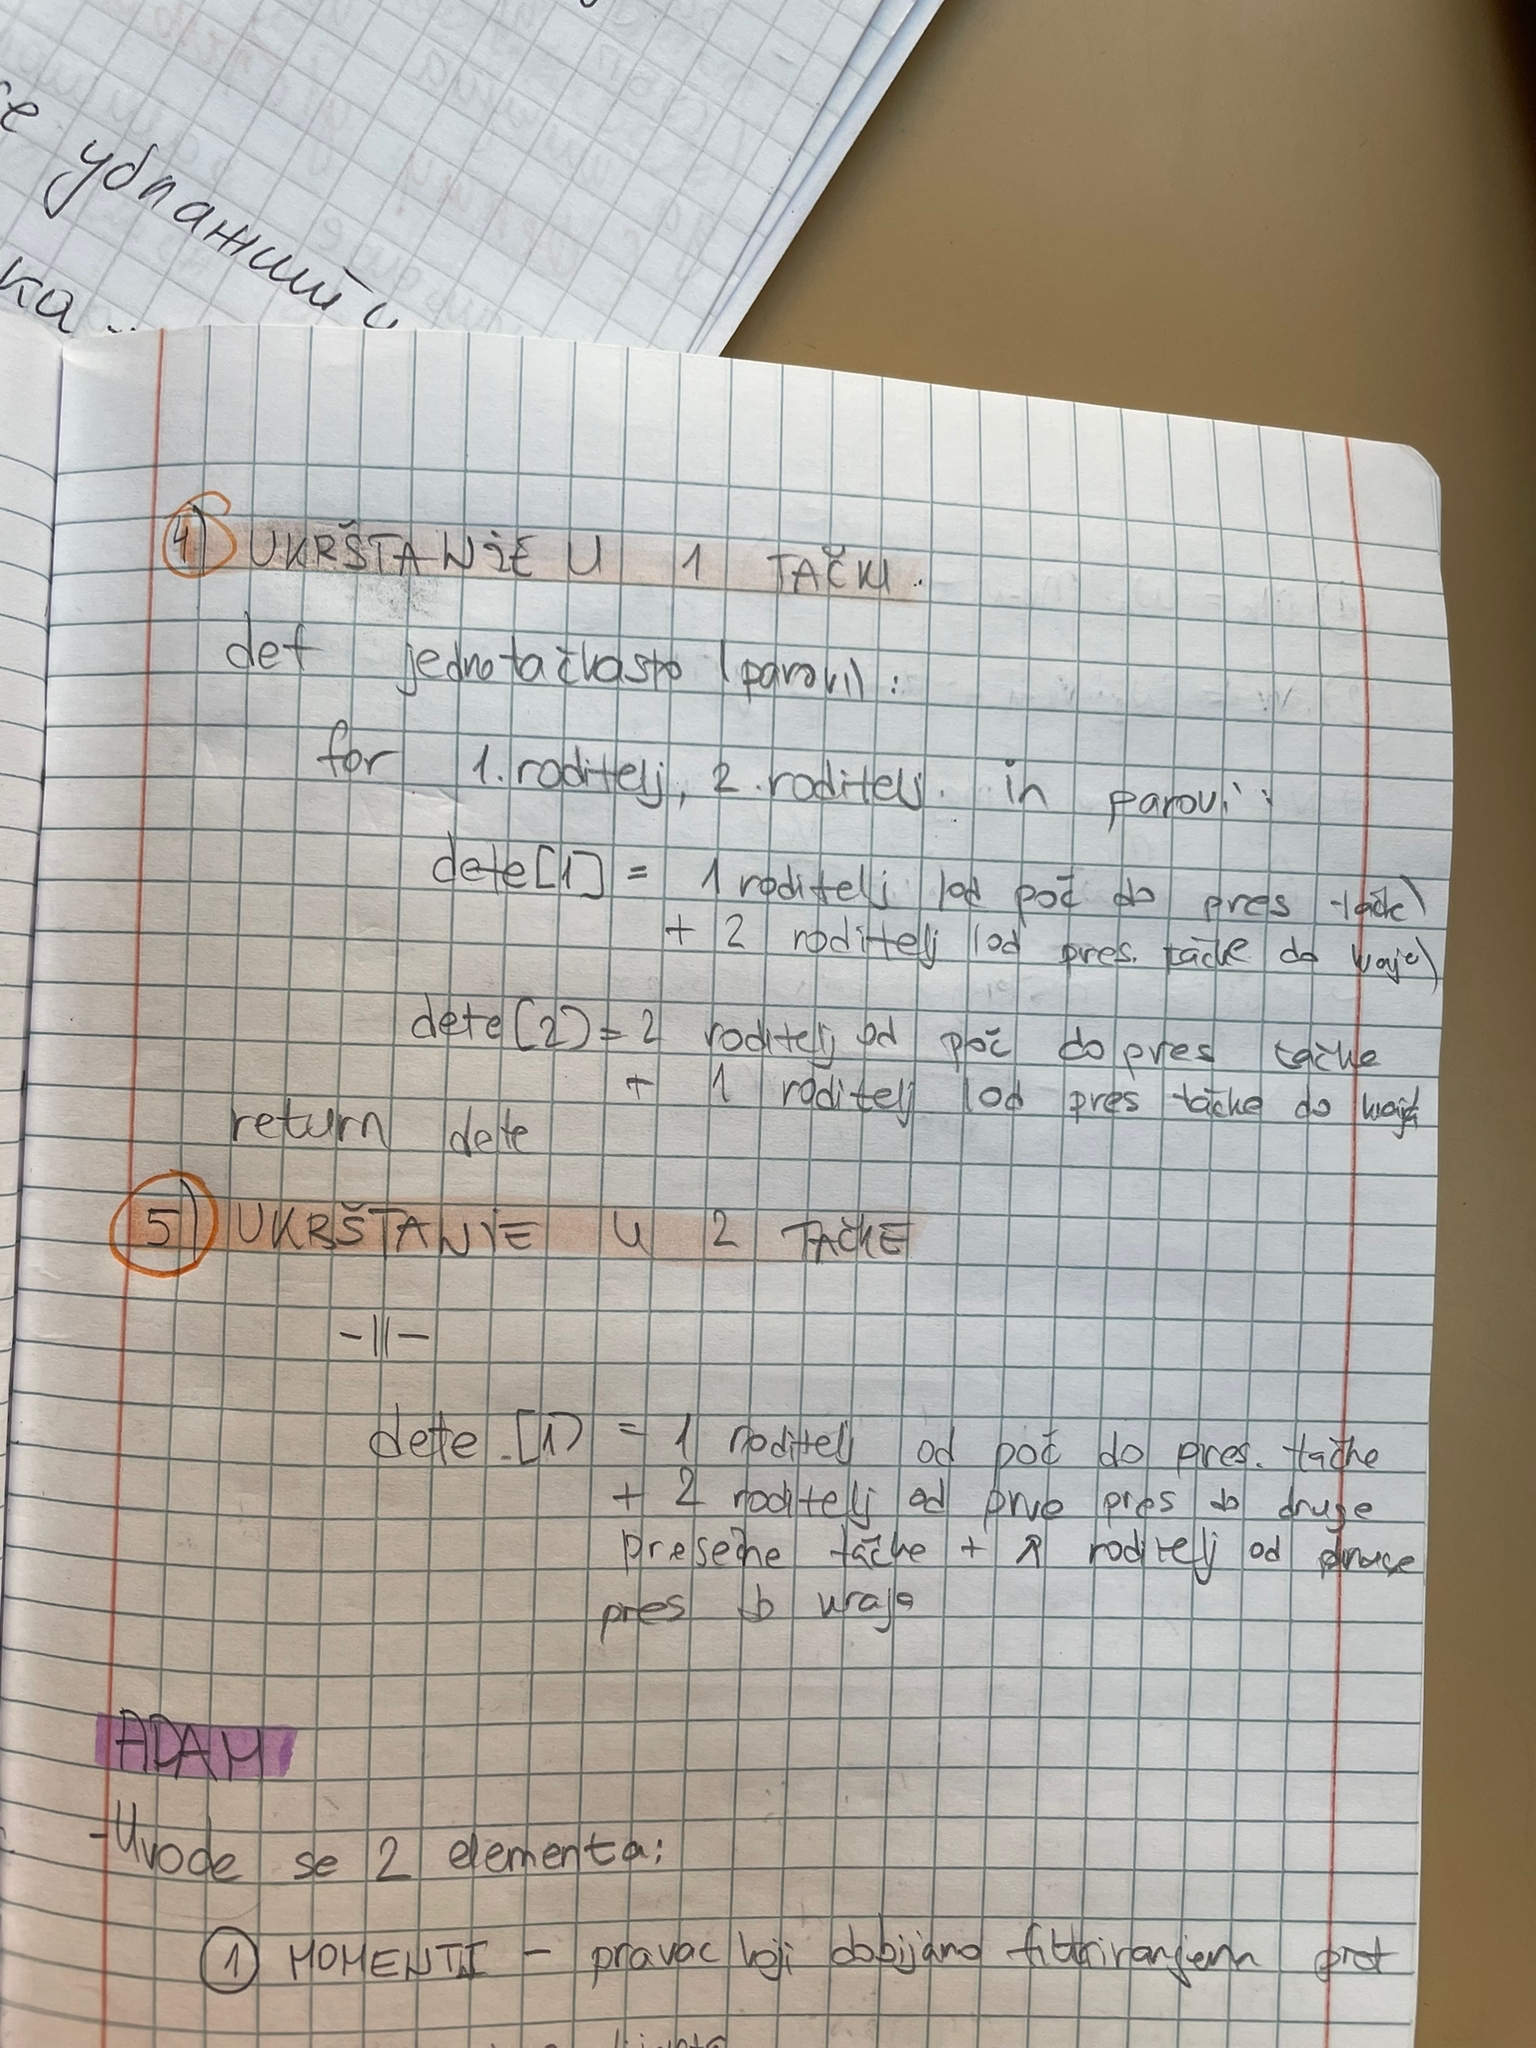 убпажити
ка...
4) UKRŠTANJE U 1 TAČKI.
def jednotačkasto (parovi):
for 1. roditelj, 2. roditelj. in parovi:
dete[1] = 1 roditelj (od poč do pres tačk)
+ 2 roditelj (od pres. tačke do kraja)
dete[2] = 2 roditelj od poč do pres tačke
+ 1 roditelj (od pres tačke do kraja
return dete
5) UKRŠTANJE U 2 TAČKE
-||-
dete.[1] = 1 roditelj od poč do pres. tačke
+ 2 roditelj od prve pres do druge
presečne tačke + 1 roditelj od druge
pres do kraja
ADAM
-Uvode se 2 elementa:
1 MOMENTI - pravac koji dobijamo filtriranjem